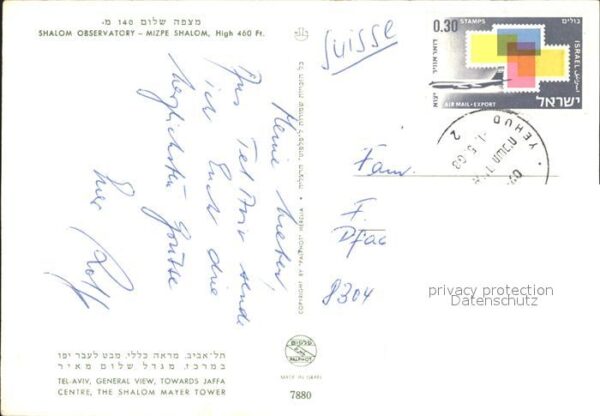 מצפה שלום 140 מ׳
SHALOM OBSERVATORY – MIZPE SHALOM, High 460 Ft.
Meine Lieben,
Aus Tel Aviv sende
ich Euch die
herzlichsten Grüsse
Euer Rolf
תל־אביב, מראה כללי, מבט לעבר יפו
במרכז, מגדל שלום מאיר
TEL-AVIV, GENERAL VIEW, TOWARDS JAFFA
CENTRE, THE SHALOM MAYER TOWER
COPYRIGHT BY PALPHOT HERZLIA
פלפוט
PALPHOT
MADE IN ISRAEL
7880
Suisse
0.30 STAMPS בולים
ISRAEL
AIR MAIL • EXPORT
ישראל
YEHUD
2
Fam.
F.
8304
privacy protection
Datenschutz